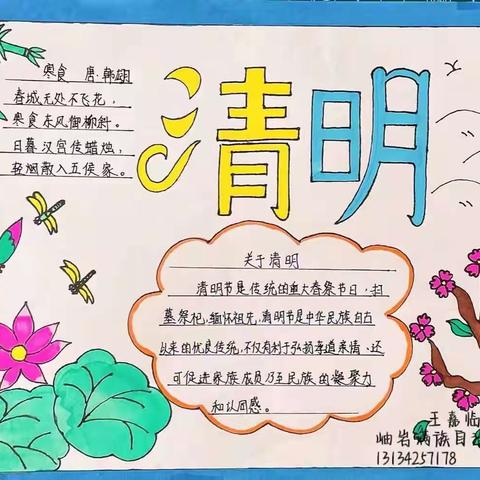 寒食 唐·韩翃
春城无处不飞花，
寒食东风御柳斜。
日暮汉宫传蜡烛，
轻烟散入五侯家。
清明
关于清明
清明节是传统的重大春祭节日，扫
墓祭祀，缅怀祖先，清明节是中华民族自古
以来的优良传统，不仅有利于弘扬孝道亲情、还
可促进家族成员乃至民族的凝聚力
和认同感。
王嘉临
岫岩满族自
13134257178